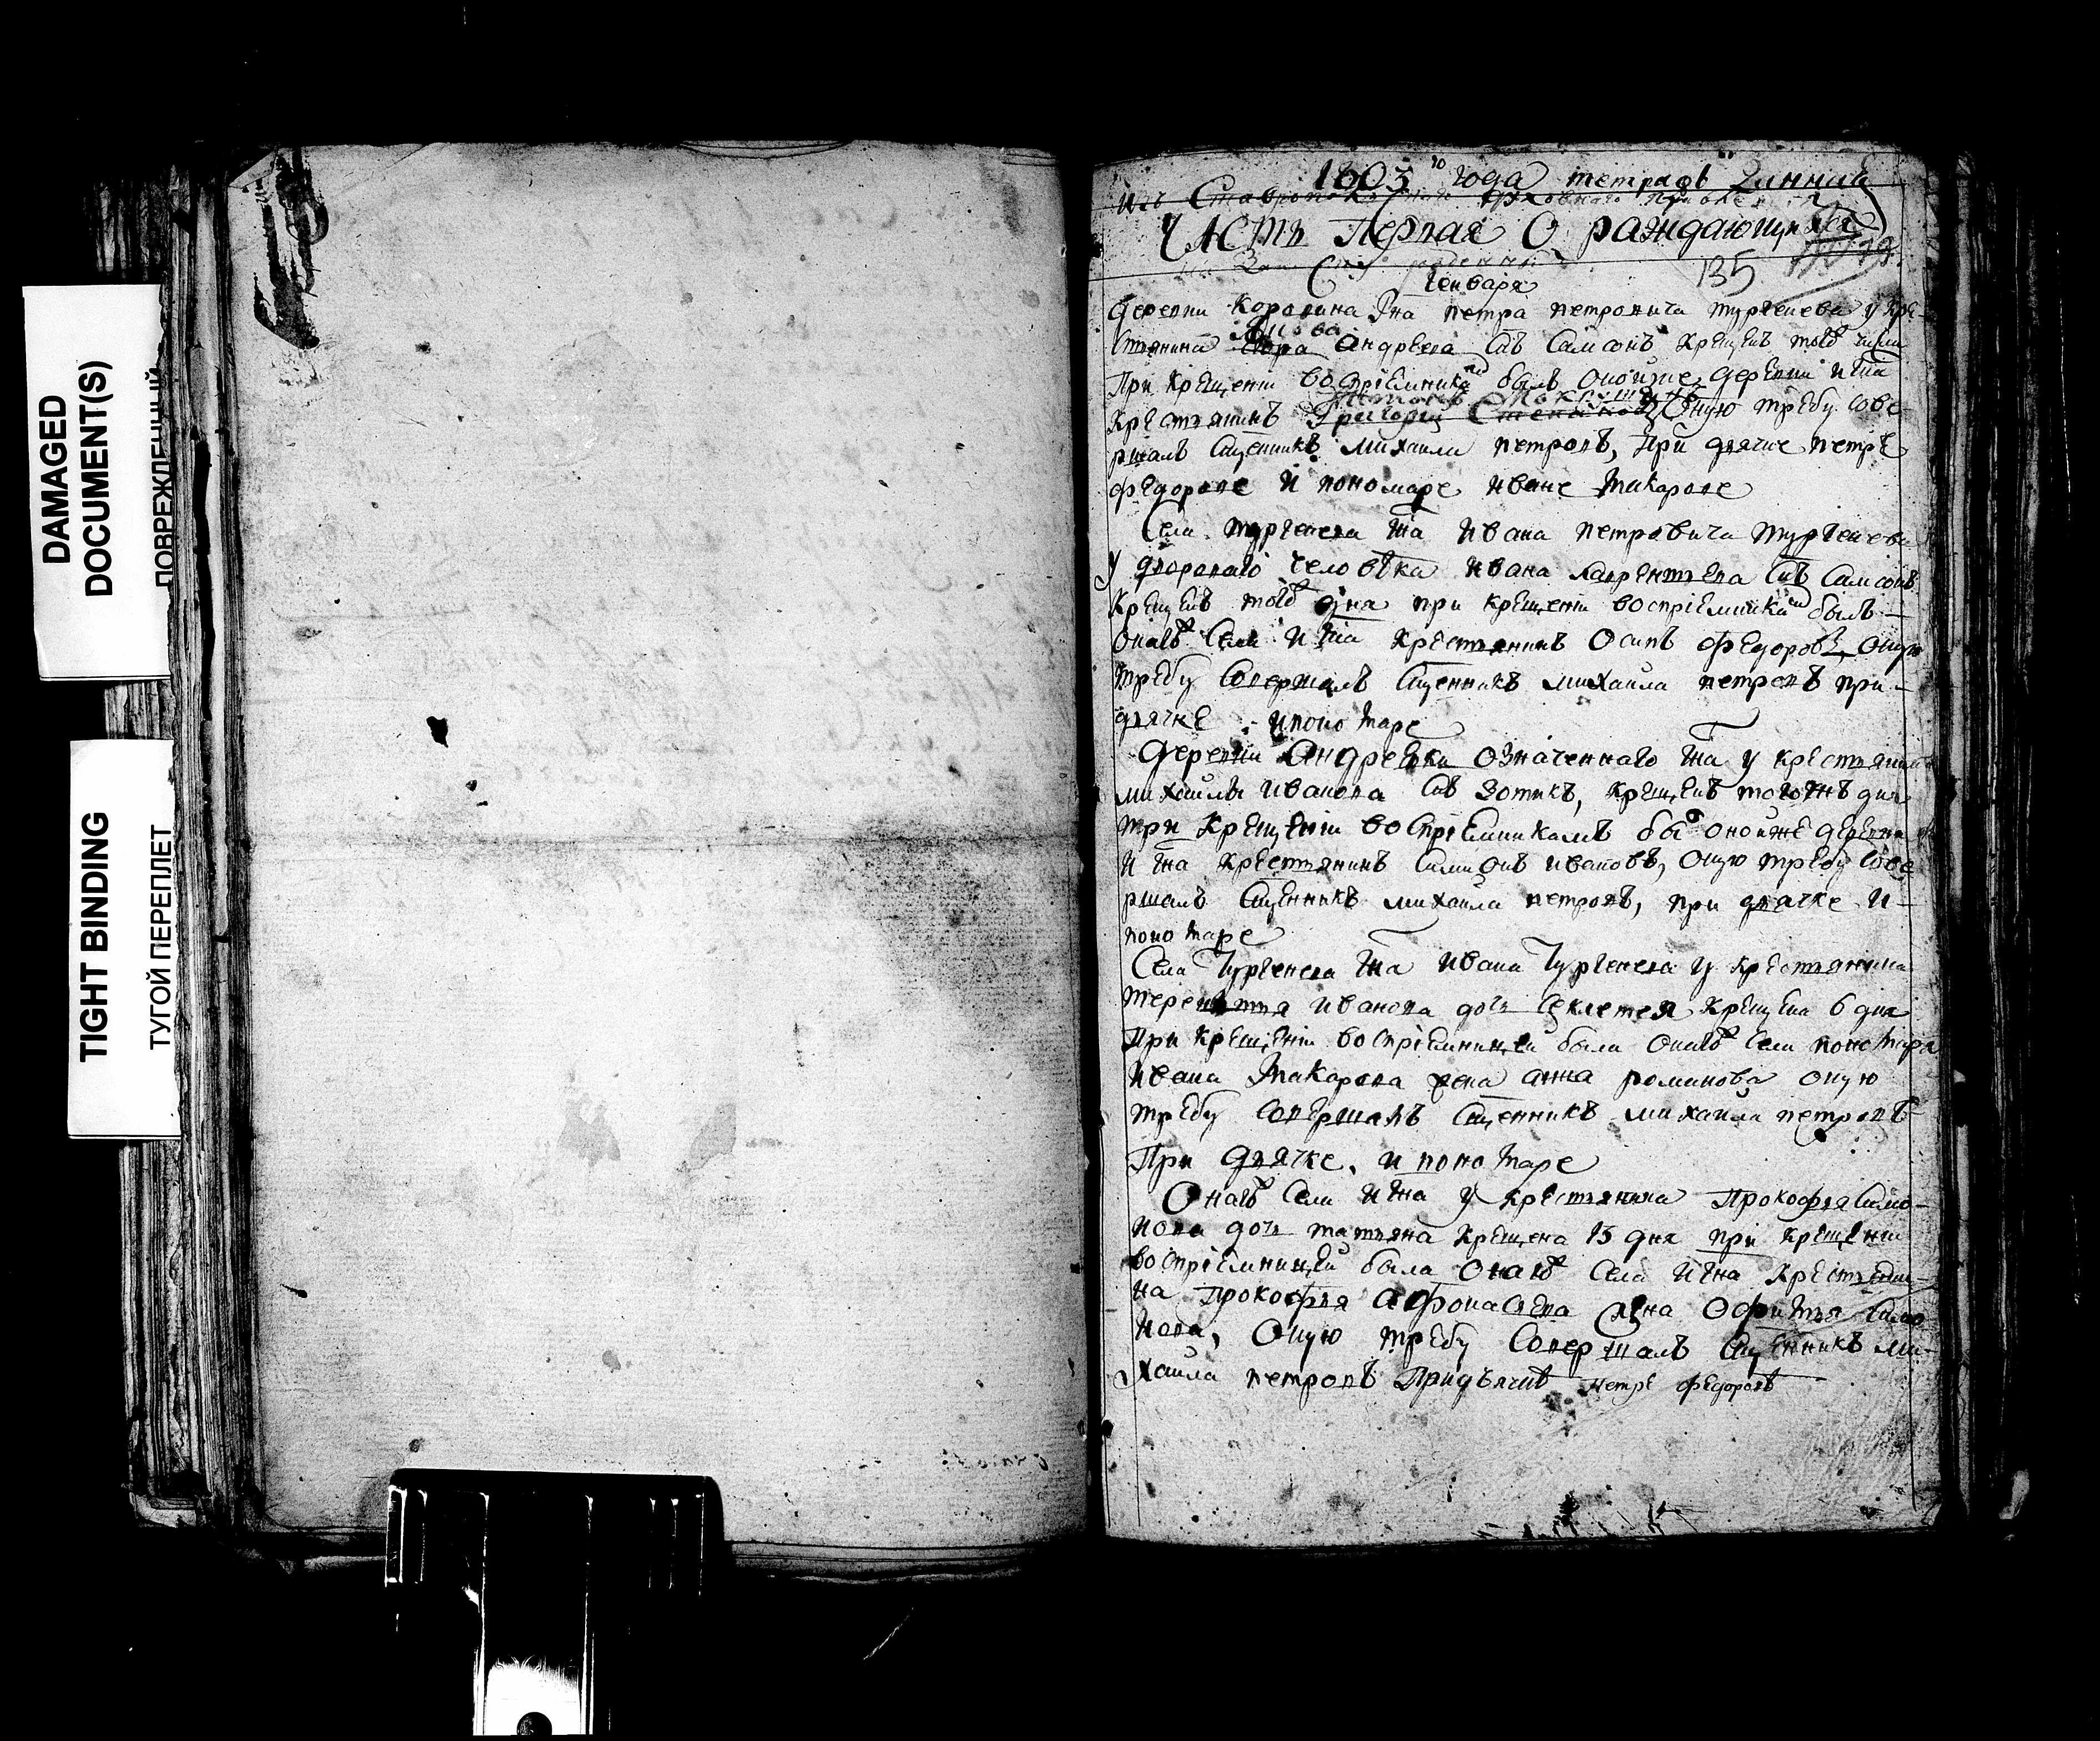 DAMAGED
DOCUMENT(S)
ПОВРЕЖДЕННЫЙ
TIGHT BINDING
ТУГОЙ ПЕРЕПЛЕТ
1803го года тетрадь
Изъ Духовнаго
Часть Первая О раждающихся
135
Генваря
деревни Коровина Гна петра петровича тургенева у кре-
стьянина Андреева Снъ Самсонъ крещенъ того числа
При крещении воспріемникомъ былъ оной же деревни и Гна
крестьянинъ Григорий Оную требу сове
ршалъ Сщенникъ михаила петровъ, При дьячке петре
федорове и пономаре иване макарове
Села тургенева Гна ивана петровича тургенева
у двороваго человѣка ивана лаврентьева Снъ Самсонъ
крещенъ того дня при крещеніи воспріемникомъ былъ
Онагѡ Села и Гна крестьянинъ Осипъ федоровъ, Оную
требу Совершалъ Сщенникъ михаила петровъ при
дьячке и пономаре
деревни Андреевки означеннаго Гна у крестьянина
михаилы иванова Снъ Зотикъ, крещенъ того жъ дня
при крещеніи воспріемникамъ бы оной же деревни
и Гна крестьянинъ Симионъ ивановъ, Оную требу Сове
ршалъ Сщенникъ михаила петровъ, при дьячке и
пономаре
Села Тургенева Гна ивана Тургенева у крестьянина
терентья иванова дочь Секлетея крещена 6 дня
При крещеніи воспріемницей была Онагѡ Села пономаря
ивана макарова жена анна романова оную
требу Совершалъ Сщенникъ михаила петровъ
При дьячке, и пономаре
Онагѡ Села и Гна у крестьянина Прокофья Симо-
нова дочь татьяна крещена 15 дня при крещении
воспріемницей была Онагѡ Села и Гна крестьяни-
на Прокофья Афонасьева жена Офимья Симо
нова, Оную требу Совершалъ Сщенникъ ми-
хаила петровъ При дьячке Петре федорове